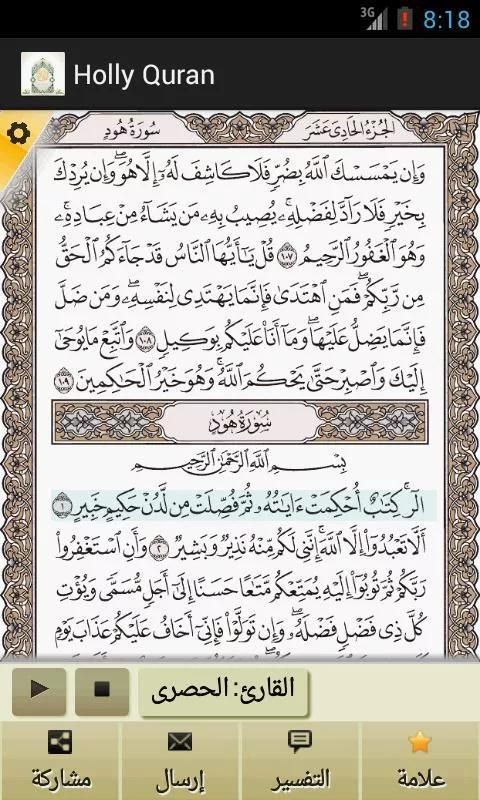 3G
8:18
Holly Quran
الجُزْءُ الحَادِى عَشَرَ
سُورَةُ هُودٍ
وَإِن يَمْسَسْكَ ٱللَّهُ بِضُرٍّ فَلَا كَاشِفَ لَهُۥٓ إِلَّا هُوَۖ وَإِن يُرِدْكَ
بِخَيْرٍ فَلَا رَآدَّ لِفَضْلِهِۦۚ يُصِيبُ بِهِۦ مَن يَشَآءُ مِنْ عِبَادِهِۦۚ
وَهُوَ ٱلْغَفُورُ ٱلرَّحِيمُ ١٠٧ قُلْ يَٰٓأَيُّهَا ٱلنَّاسُ قَدْ جَآءَكُمُ ٱلْحَقُّ
مِن رَّبِّكُمْۖ فَمَنِ ٱهْتَدَىٰ فَإِنَّمَا يَهْتَدِى لِنَفْسِهِۦۖ وَمَن ضَلَّ
فَإِنَّمَا يَضِلُّ عَلَيْهَاۖ وَمَآ أَنَا۠ عَلَيْكُم بِوَكِيلٍ ١٠٨ وَٱتَّبِعْ مَا يُوحَىٰٓ
إِلَيْكَ وَٱصْبِرْ حَتَّىٰ يَحْكُمَ ٱللَّهُۚ وَهُوَ خَيْرُ ٱلْحَٰكِمِينَ ١٠٩
سُورَةُ هُودٍ
بِسْمِ ٱللَّهِ ٱلرَّحْمَٰنِ ٱلرَّحِيمِ
الٓرۚ كِتَٰبٌ أُحْكِمَتْ ءَايَٰتُهُۥ ثُمَّ فُصِّلَتْ مِن لَّدُنْ حَكِيمٍ خَبِيرٍ ١
أَلَّا تَعْبُدُوٓا۟ إِلَّا ٱللَّهَۚ إِنَّنِى لَكُم مِّنْهُ نَذِيرٌ وَبَشِيرٌ ٢ وَأَنِ ٱسْتَغْفِرُوا۟
رَبَّكُمْ ثُمَّ تُوبُوٓا۟ إِلَيْهِ يُمَتِّعْكُم مَّتَٰعًا حَسَنًا إِلَىٰٓ أَجَلٍ مُّسَمًّى وَيُؤْتِ
كُلَّ ذِى فَضْلٍ فَضْلَهُۥۖ وَإِن تَوَلَّوْا۟ فَإِنِّىٓ أَخَافُ عَلَيْكُمْ عَذَابَ يَوْمٍ
القارئ: الحصرى
علامة
التفسير
إرسال
مشاركة